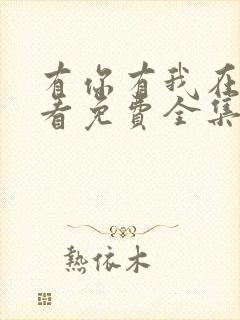 有你有我在
看免費全集
熱依木